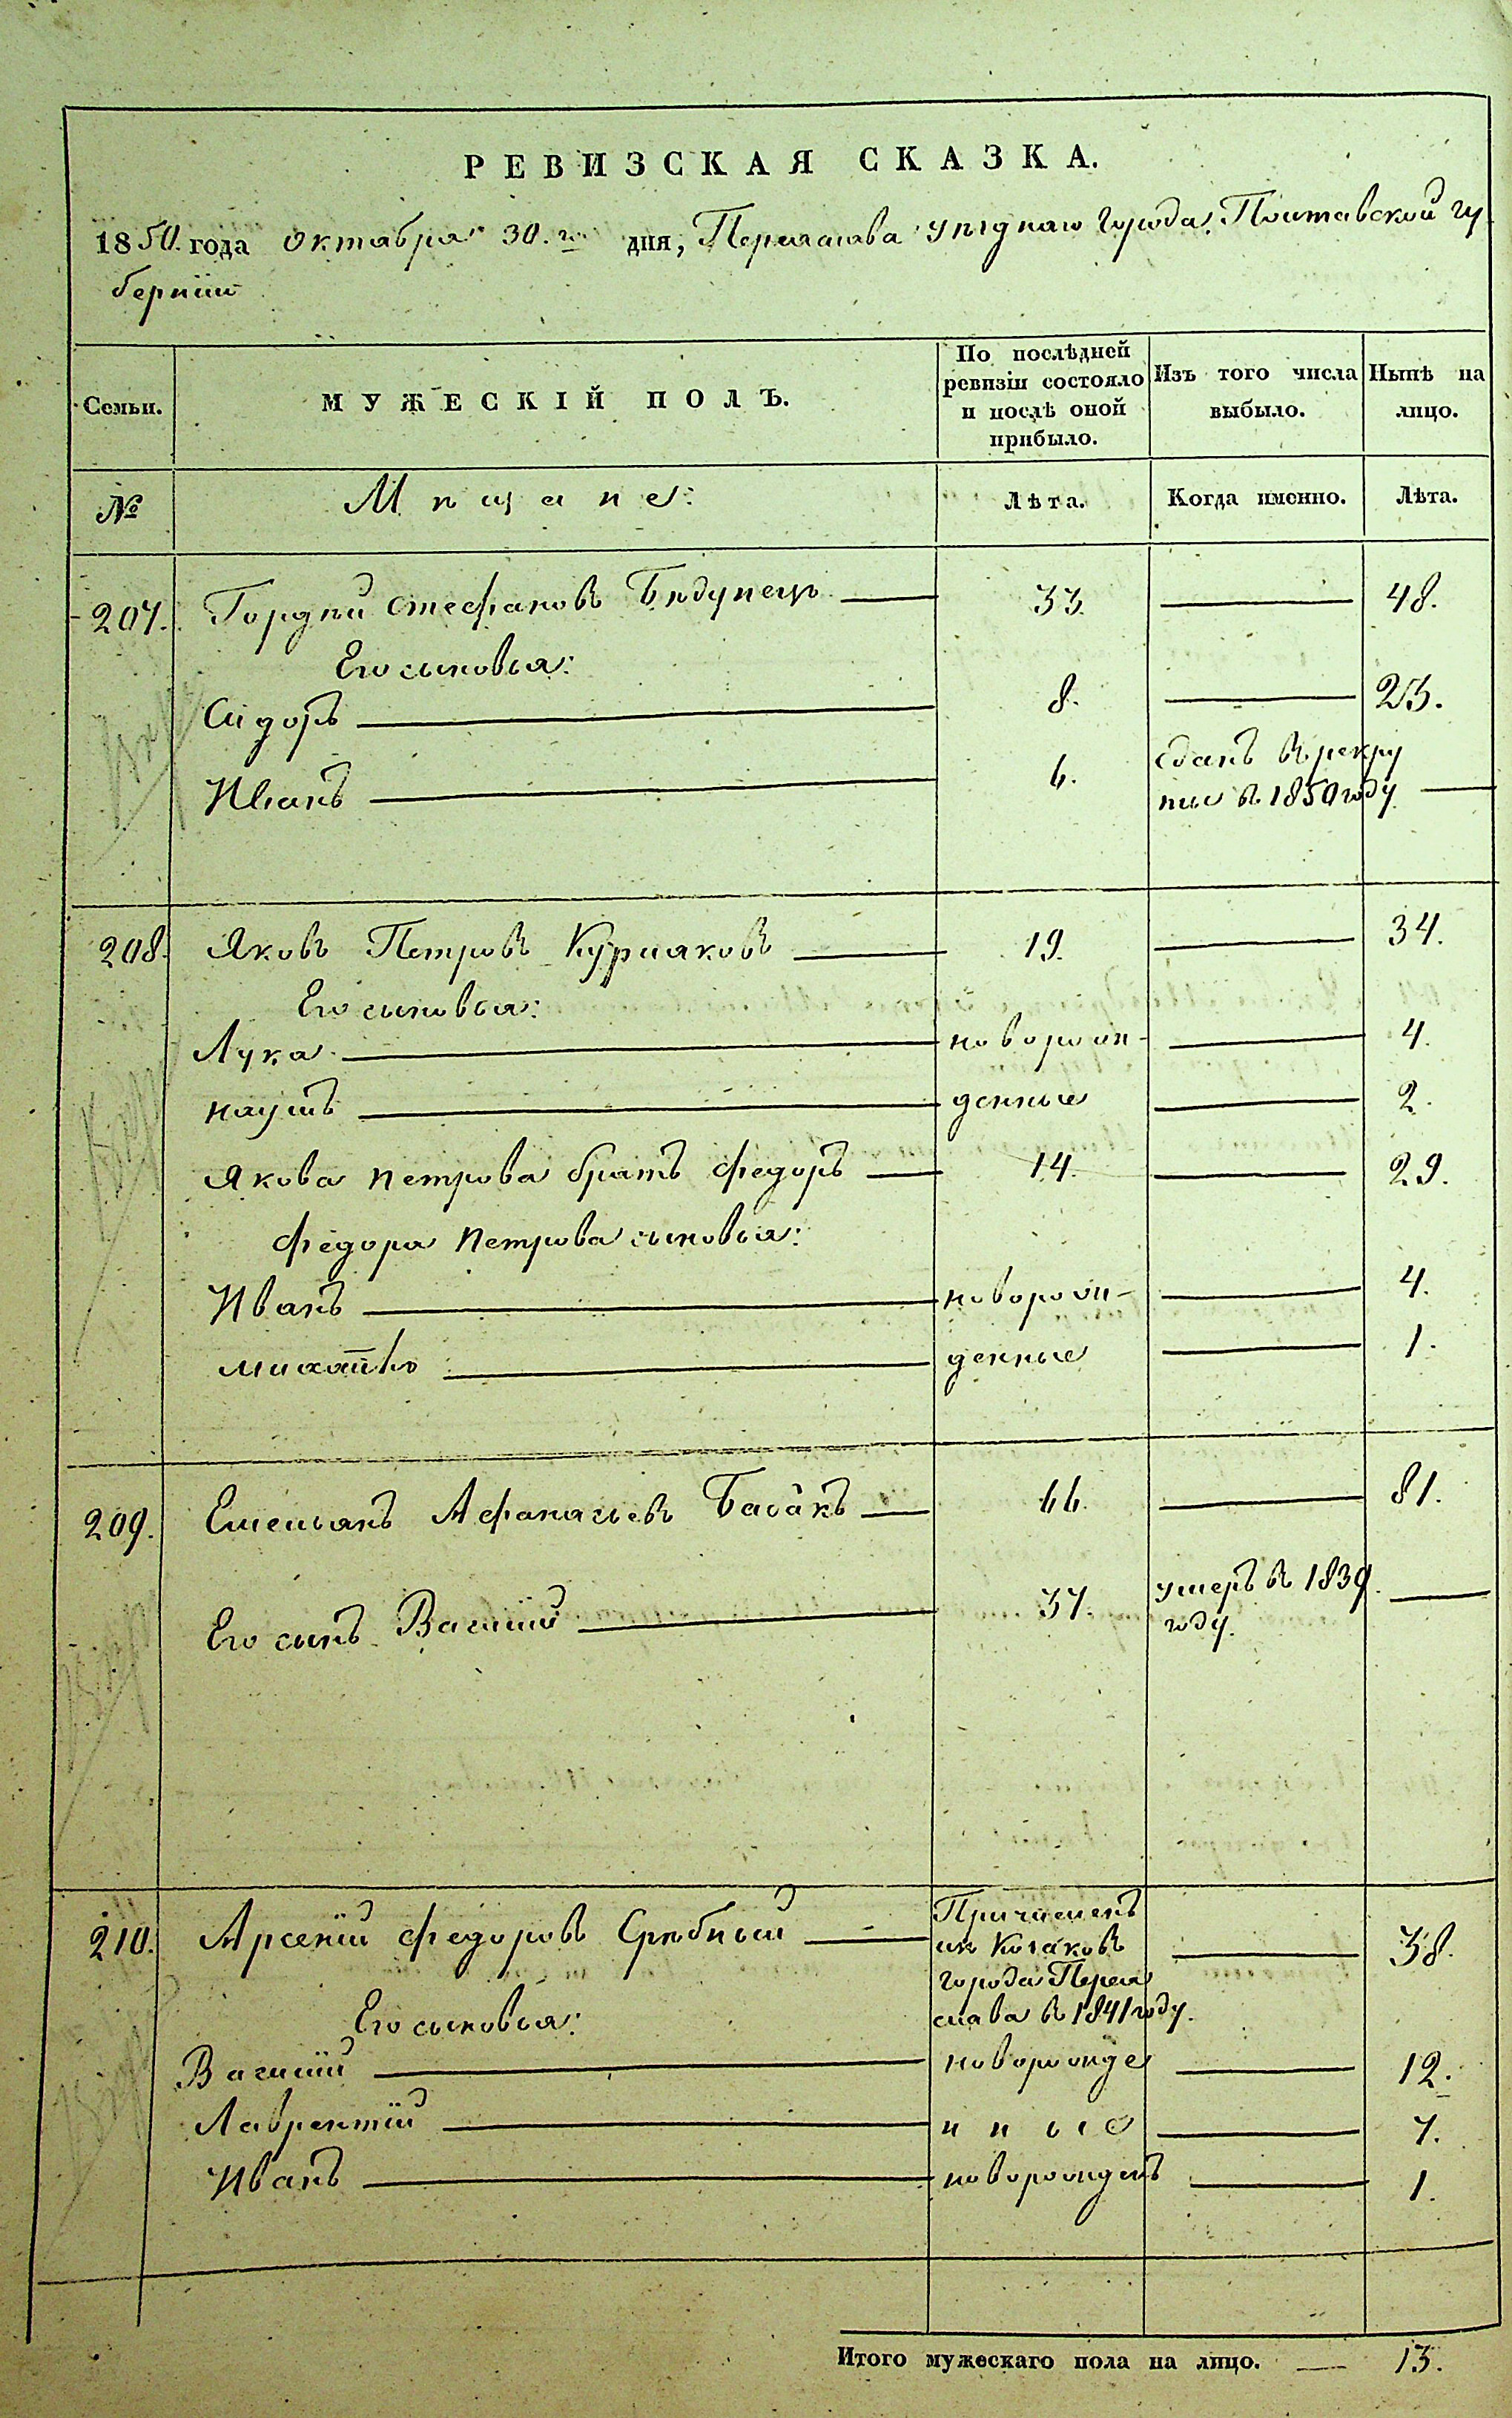 РЕВИЗСКАЯ СКАЗКА.
1850. года Октября 30.го дня, Переяслава уѣзднаго города Полтавской гу
берніи
Семьи. МУЖЕСКІЙ ПОЛЪ. По послѣдней ревизіи состояло и послѣ оной прибыло. Изъ того числа выбыло. Нынѣ на лицо.
№ Мѣщане: Лѣта. Когда именно. Лѣта.
207. Гордѣй Стефановъ Бѣдунецъ 33. 48.
Его сыновья:
Сидоръ 8. 23.
Иванъ 6. сданъ въ рекру
ты въ 1850 году
208. Яковъ Петровъ Курмаковъ 19. 34.
Его сыновья:
Лука новорож- 4.
Наумъ денные 2.
Якова Петрова братъ Федоръ 14. 29.
Федора Петрова сыновья:
Иванъ новорож- 4.
Михайло денные 1.
209. Емельянъ Афанасьевъ Басакъ 66. 81.
Его сынъ Василій 37. умеръ въ 1839
году.
210. Арсеній Федоровъ Срѣбный Причисленъ 38.
изъ Козаковъ
города Перея
слава въ 1841 году.
Его сыновья:
Василій новорожде 12.
Лаврентій нные 7.
Иванъ новорожденъ 1.
Итого мужескаго пола на лицо. 13.